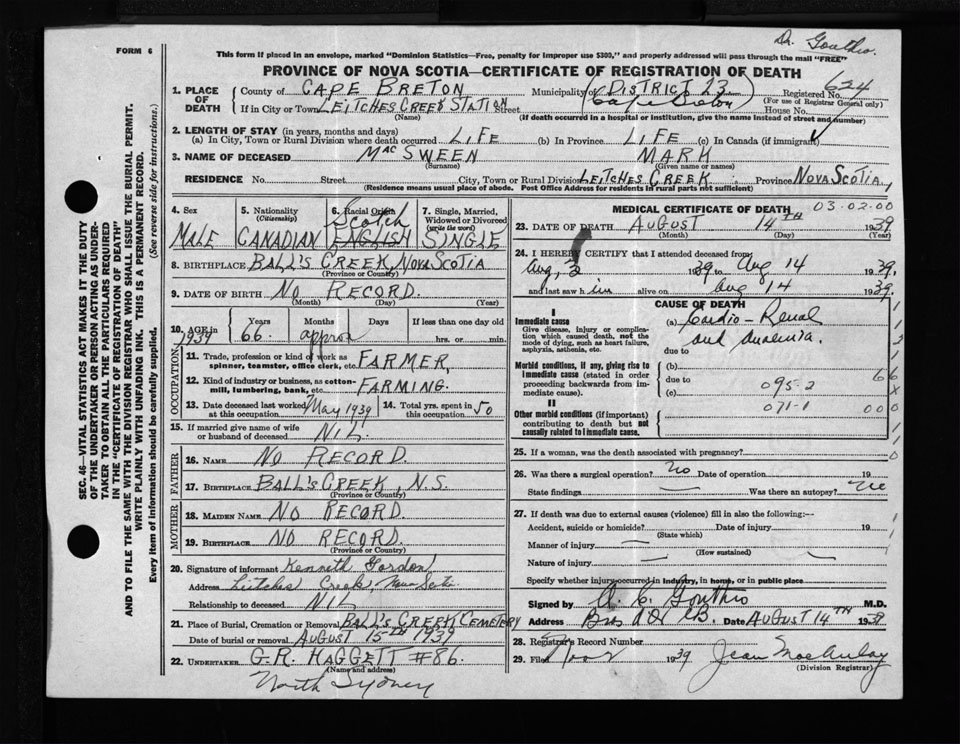 Dr. Gouthro.
FORM 6
This form if placed in an envelope, marked "Dominion Statistics—Free, penalty for improper use $300," and properly addressed will pass through the mail "FREE"
PROVINCE OF NOVA SCOTIA—CERTIFICATE OF REGISTRATION OF DEATH
624
1. PLACE OF DEATH
County of CAPE BRETON Municipality of DISTRICT 23 Registered No.
(Cape Breton) (For use of Registrar General only)
If in City or Town LEITCHES CREEK STATION Street House No.
(Name) (If death occurred in a hospital or institution, give the name instead of street and number)
2. LENGTH OF STAY (in years, months and days)
(a) In City, Town or Rural Division where death occurred LIFE (b) In Province LIFE (c) In Canada (if immigrant)
3. NAME OF DECEASED MacSWEEN MARK
(Surname) (Given name or names)
RESIDENCE No. Street City, Town or Rural Division LEITCHES CREEK Province NOVA SCOTIA
(Residence means usual place of abode. Post Office Address for residents in rural parts not sufficient)
4. Sex
MALE
5. Nationality
(Citizenship)
CANADIAN
6. Racial Origin
Scotch
ENGLISH
7. Single, Married, Widowed or Divorced
(write the word)
SINGLE
8. BIRTHPLACE BALL'S CREEK, NOVA SCOTIA
(Province or Country)
9. DATE OF BIRTH NO RECORD.
(Month) (Day) (Year)
10. AGE in Years Months Days If less than one day old
1939 66. approx hrs. or min.
OCCUPATION
11. Trade, profession or kind of work as spinner, teamster, office clerk, etc. FARMER,
12. Kind of industry or business, as cotton-mill, lumbering, bank, etc. FARMING.
13. Date deceased last worked at this occupation May 1939
14. Total yrs. spent in this occupation 50
15. If married give name of wife or husband of deceased NIL
FATHER
16. NAME NO RECORD.
17. BIRTHPLACE BALL'S CREEK, N.S.
(Province or Country)
MOTHER
18. MAIDEN NAME NO RECORD
19. BIRTHPLACE NO RECORD
(Province or Country)
20. Signature of informant Kenneth Gordon
Address Leitches Creek, Nova Scotia
Relationship to deceased NIL
21. Place of Burial, Cremation or Removal BALL'S CREEK CEMETERY
Date of burial or removal AUGUST 15TH 1939
22. UNDERTAKER G.R. HAGGETT #86.
(Name and address)
North Sydney
MEDICAL CERTIFICATE OF DEATH 03-02-00
23. DATE OF DEATH AUGUST 14TH 1939
(Month) (Day) (Year)
24. I HEREBY CERTIFY that I attended deceased from
Aug, 3 1939 to Aug 14 1939.
and last saw him alive on Aug 14 1939.
CAUSE OF DEATH
I
Immediate cause
Give disease, injury or complication which caused death, not the mode of dying, such as heart failure, asphyxia, asthenia, etc.
(a) Cardio-Renal
and Anaemia.
due to
Morbid conditions, if any, giving rise to immediate cause (stated in order proceeding backwards from immediate cause).
(b)
due to
(c) 095-2
071-1
II
Other morbid conditions (if important) contributing to death but not causally related to immediate cause.
25. If a woman, was the death associated with pregnancy?
26. Was there a surgical operation? no Date of operation 19
State findings — Was there an autopsy? no
27. If death was due to external causes (violence) fill in also the following:—
Accident, suicide or homicide? Date of injury 19
(State which)
Manner of injury
(How sustained)
Nature of injury
Specify whether injury occurred in industry, in home, or in public place
Signed by A. C. Gouthro M.D.
Address Date AUGUST 14TH 1939
28. Registrar's Record Number
29. Filed 1939 Jean MacAulay
(Division Registrar)
SEC. 46—VITAL STATISTICS ACT MAKES IT THE DUTY
OF THE UNDERTAKER OR PERSON ACTING AS UNDER-
TAKER TO OBTAIN ALL THE PARTICULARS REQUIRED
IN THE "CERTIFICATE OF REGISTRATION OF DEATH"
AND TO FILE THE SAME WITH THE DIVISION REGISTRAR WHO SHALL ISSUE THE BURIAL PERMIT.
WRITE PLAINLY WITH UNFADING INK. THIS IS A PERMANENT RECORD.
Every item of information should be carefully supplied. (See reverse side for instructions.)